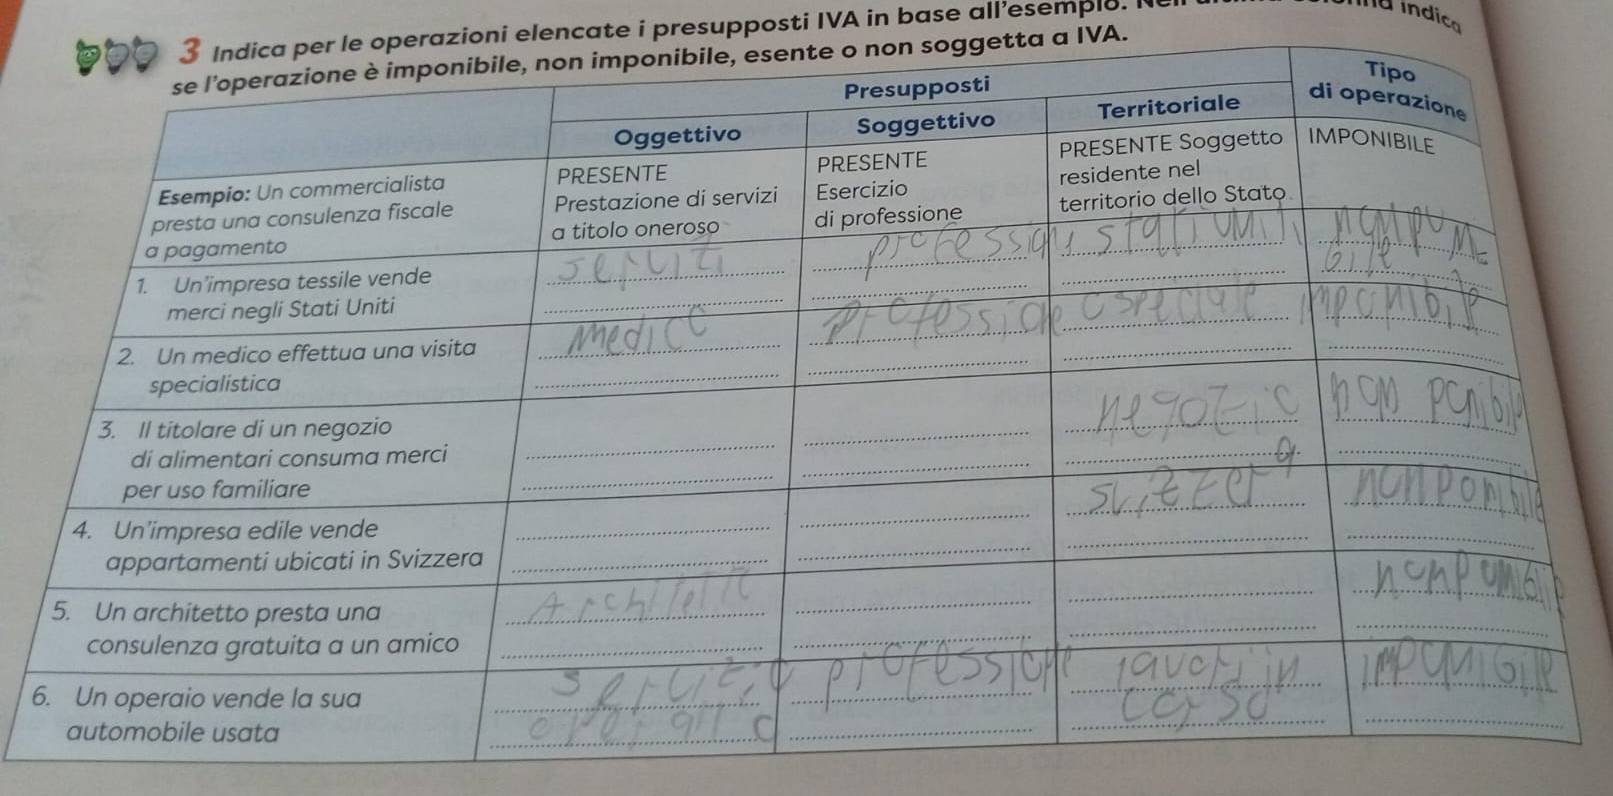 3 Indica per le operazioni elencate i presupposti IVA in base all'esempio.
indica
se l'operazione è imponibile, non imponibile, esente o non soggetta a IVA.
Presupposti
Tipo
di operazione
Oggettivo
Soggettivo
Territoriale
Esempio: Un commercialista
presta una consulenza fiscale
a pagamento
PRESENTE
Prestazione di servizi
a titolo oneroso
PRESENTE
Esercizio
di professione
PRESENTE Soggetto
residente nel
territorio dello Stato
IMPONIBILE
1. Un'impresa tessile vende
merci negli Stati Uniti
servizi
2. Un medico effettua una visita
specialistica
medico
professione
speciale
imponibile
3. Il titolare di un negozio
di alimentari consuma merci
per uso familiare
negozio
non ponibile
4. Un'impresa edile vende
appartamenti ubicati in Svizzera
svizzera
non ponibile
5. Un architetto presta una
consulenza gratuita a un amico
6. Un operaio vende la sua
automobile usata
servizio
operaio
professione
lavori in
corso
imponibile